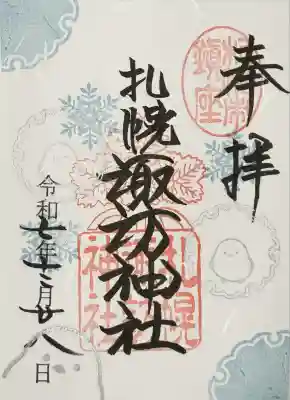 奉拝
札幌
諏訪神社
令和七年十二月廿八日
札幌
諏訪
神社